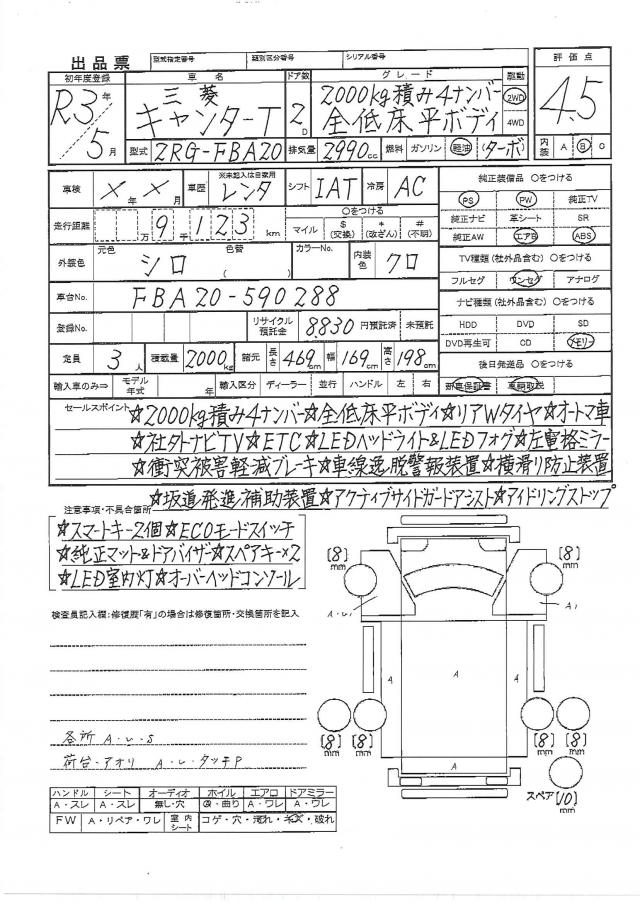 出品票 型式指定番号 類別区分番号 シリアル番号
初年度登録 車名 ドア数 グレード 駆動 評価点
R3年 三菱 2000kg積み4ナンバー 2WD
5月 キャンター-T 2D 全低床平ボディ 4WD 4.5
型式 2RG-FBA20 排気量 2990cc 燃料 ガソリン 軽油 (ターボ) 内装 A B C
車検 X年X月 車歴 ※未記入は自家用 レンタ シフト IAT 冷房 AC 純正装備品 ○をつける
PS PW 純正TV
走行距離 万9千123km ○をつける マイル $(交換) *(改ざん) #(不明) 純正ナビ 革シート SR
純正AW エアB ABS
外装色 元色 シロ 色替 ( ) カラーNo. 内装色 クロ TV種類(社外品含む) ○をつける
フルセグ ワンセグ アナログ
車台No. FBA20-590288 ナビ種類(社外品含む) ○をつける
登録No. リサイクル預託金 8,830円預託済 未預託 HDD DVD SD
DVD再生可 CD メモリー
定員 3人 積載量 2000kg 諸元 長さ469cm 幅169cm 高さ198cm 後日発送品 ○をつける
輸入車のみ⇒ モデル年式 年 輸入区分 ディーラー 並行 ハンドル 左 右 新車保証書 車輌取説
セールスポイント ☆2000kg積み4ナンバー☆全低床平ボディ☆リアWタイヤ☆オートマ車
☆社外ナビTV☆ETC☆LEDヘッドライト&LEDフォグ☆左電格ミラー
☆衝突被害軽減ブレーキ☆車線逸脱警報装置☆横滑り防止装置
☆坂道発進補助装置☆アクティブサイドガードアシスト☆アイドリングストップ
注意事項・不具合箇所
☆スマートキー2個☆ECOモードスイッチ
☆純正マット&ドアバイザー☆スペアキー×2
☆LED室内灯☆オーバーヘッドコンソール
[8]mm [8]mm
検査員記入欄:修復歴「有」の場合は修復箇所・交換箇所を記入
A・U1 A1
A A A
[8]mm [8]mm [8]mm [8]mm
各所 A・U・S
荷台・アオリ A・U・タッチP
A
スペア [10]mm
ハンドル シート オーディオ ホイル エアロ ドアミラー
A・スレ A・スレ 無し・穴 A・曲り A・ワレ A・ワレ
FW A・リペア・ワレ 室内シート コゲ・穴・汚れ・キズ・破れ